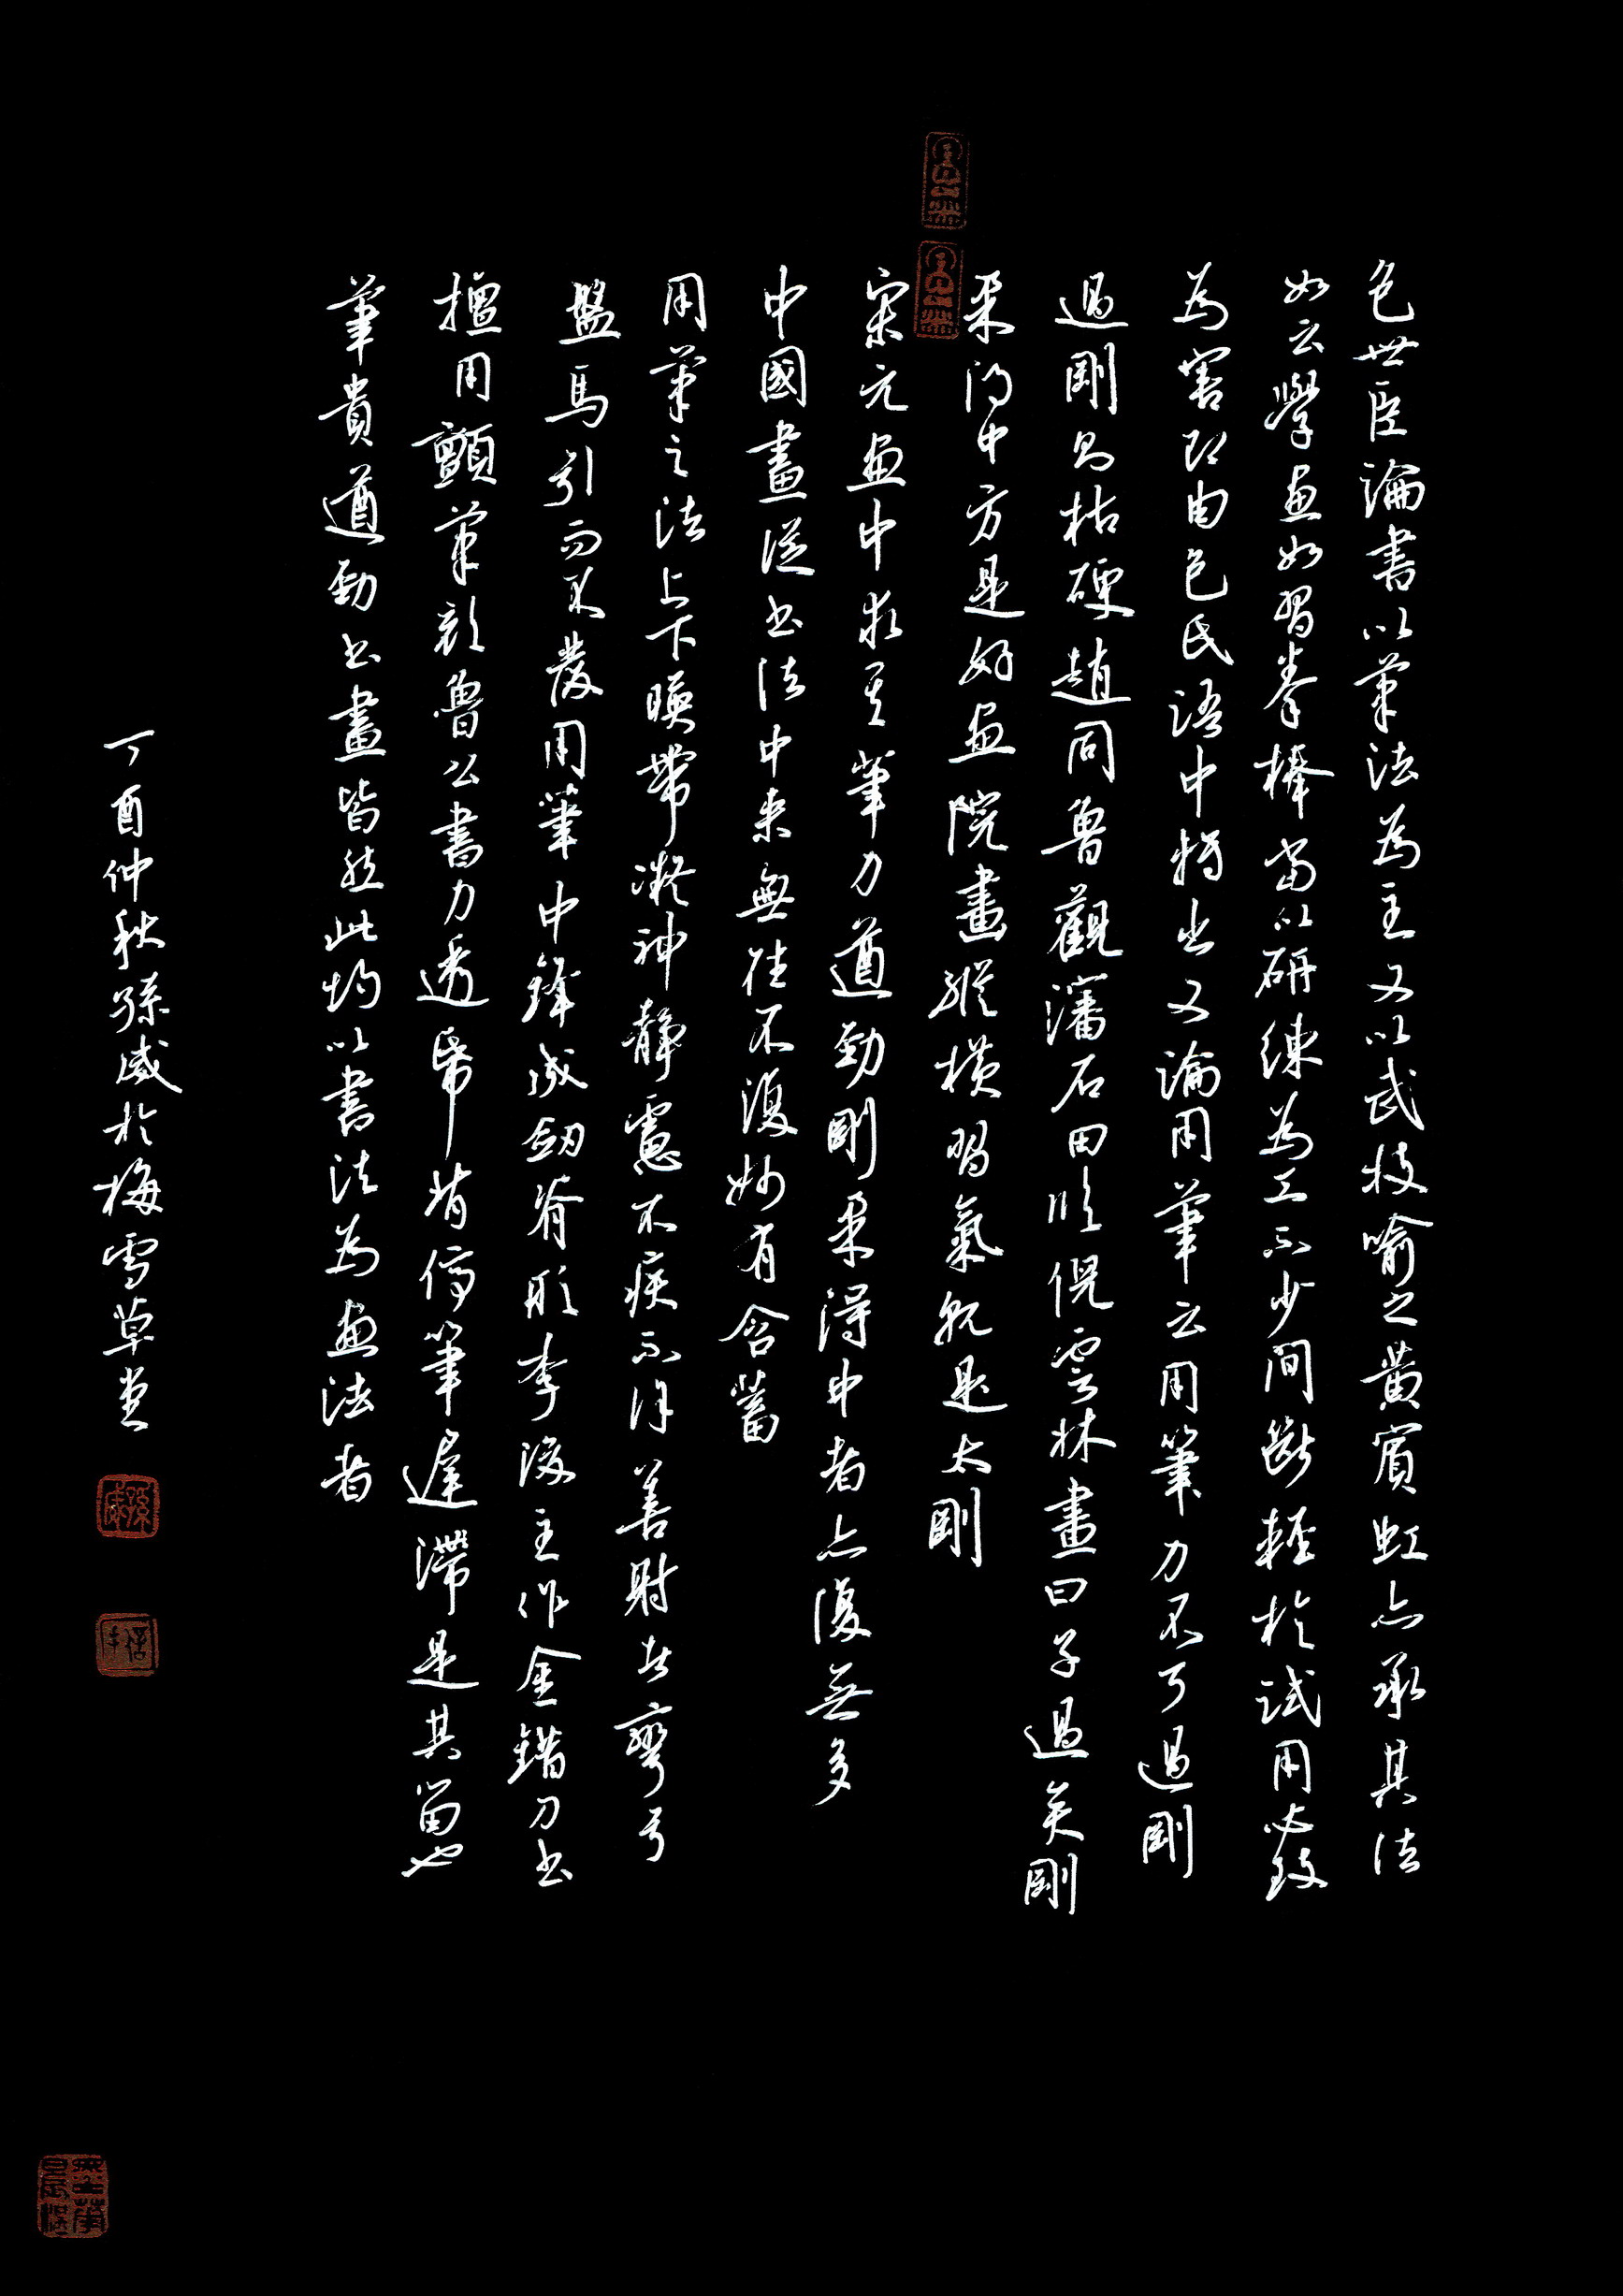 包世臣論書以筆法為主又以武技喻之黃賓虹亦承其法
如云學畫如習拳棒當以研練為工不少間斷輕於試用必致
為害即由包氏語中將出又論用筆云用筆力不可過剛
過剛為枯硬趙同魯觀瀋石田臨倪雲林畫曰子過矣剛
柔得中方是好画院畫縱橫習氣就是太剛
宋元画中求其筆力遒勁剛柔得中者亦復無多
中國畫從书法中來無往不復妙有含蓄
用筆之法上下暎帶凝神靜慮不疾不徐善射者彎弓
盤馬引而不發用筆中鋒成劒脊形李後主作金錯刀书
擅用顫筆顏魯公書力透紙背停筆遲滯是其留也
筆貴遒勁书畫皆然此均以書法為画法者
丁酉仲秋孫威於梅雪草堂